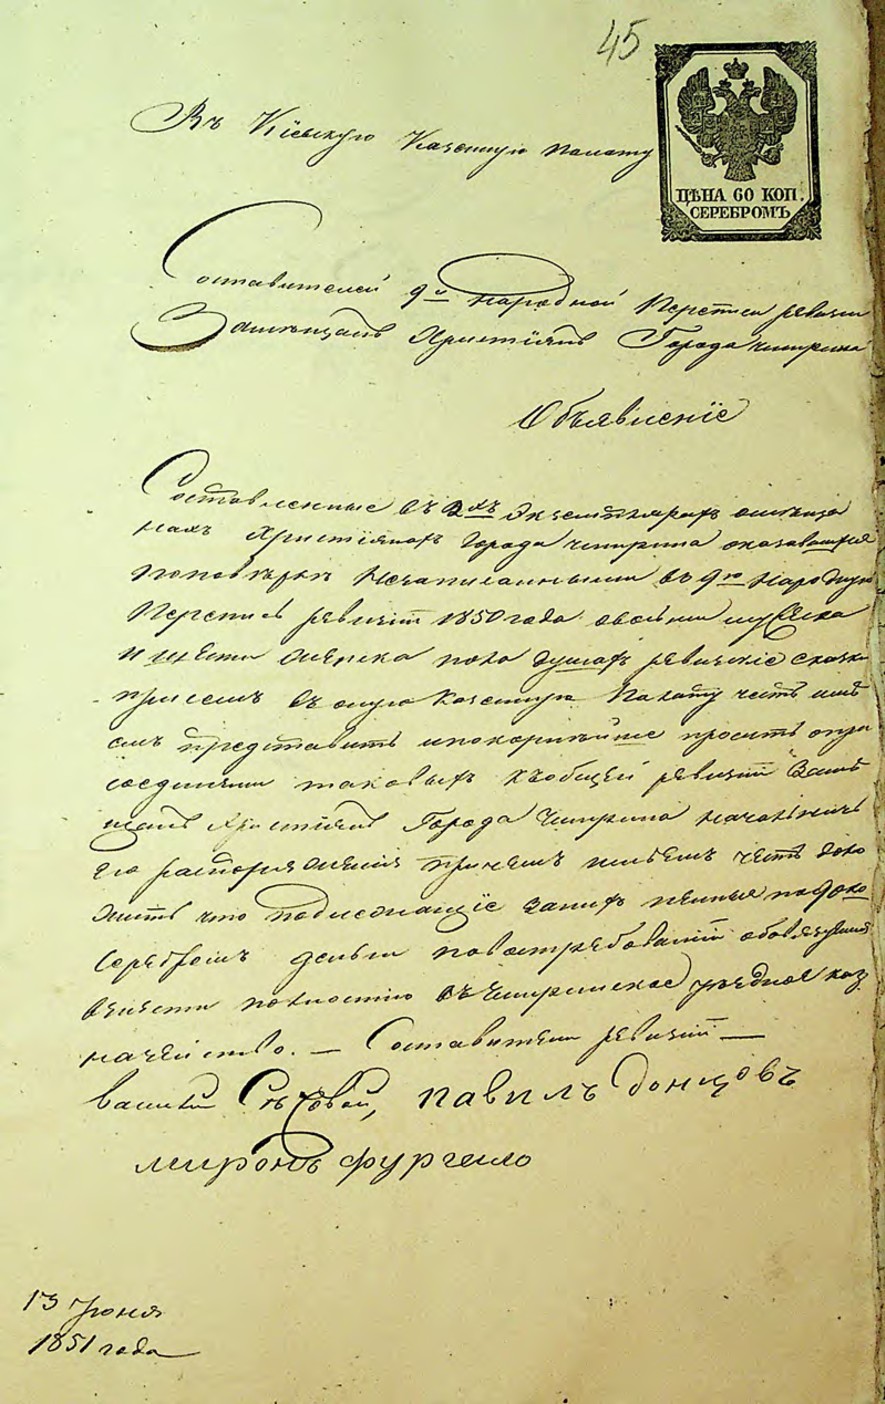 45
ЦѢНА 60 КОП.
СЕРЕБРОМЪ
Въ Кіевскую Казенную палату
Составителей 9й народной Переписи ревизіи
Города Чигирина
Объявленіе
Составленные въ 2хъ Экземплярахъ о мѣща
нахъ Христіянахъ Города Чигирина оказавшихся
по повѣркѣ Незаписанными въ 9ю Народную
Перепись ревизіи 1850 года мужеска
и женска пола душахъ ревизскіе сказки
при семъ въ оную Казенную Палату честь имѣ
емъ представить и покорнѣйше просить о при
соединении таковыхъ къ общей ревизіи
Христіянъ Города Чигирина
его распоряженія причемъ имѣемъ честь доло
жить что подлежащіе за нихъ
серебромъ деньги по востребованіи обовязуемся
взнести полностію въ Чигиринское уѣздное каз
начейство. — Составители ревизіи —
Павилъ донцовъ
миронъ фургело
13 Іюня
1851 года